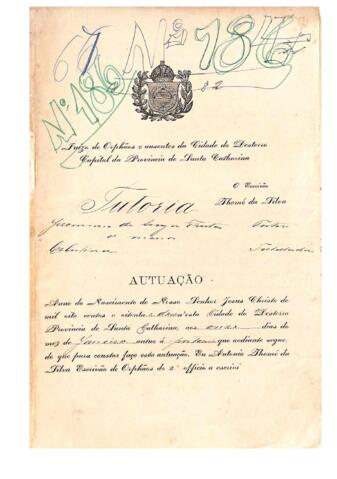 67 Nº 186
Nº 186
82
Juizo de Orphãos e ausentes da Cidade do Desterro
Capital da Provincia de Santa Catharina
O Escrivão
Tutoria Thomé da Silva
Tutor
o menor
AUTUAÇÃO
Anno do Nascimento de Nosso Senhor Jesus Christo de
mil oito centos e oitenta e nesta Cidade do Desterro
Provincia de Santa Catharina, aos onze dias do
mez de Janeiro autuo a que adiante segue,
do que para constar faço esta autuação. Eu Antonio Thomé da
Silva Escrivão de Orphãos do 2º officio a escrivi